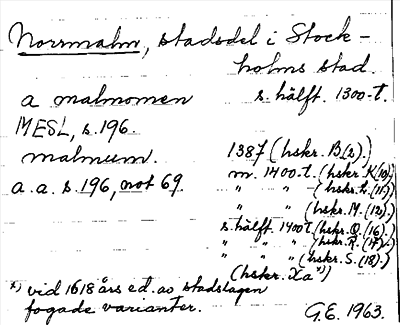 Norrmalm, stadsdel i Stock-
holms stad.
a malmomen s. hälft. 1300-t.
MESL, s. 196.
malmum. 1387 (hskr. B (2).)
a. a. s. 196, not 69. m. 1400-t. (hskr. K (10).)
" " (hskr. L. (11).)
" " (hskr. M. (12).)
s. hälft. 1400 t. (hskr. Q. (16).)
" " " (hskr. R. (17).)
" " " (hskr. S. (18).)
(hskr. Xa x))
x) vid 1618 års ed. av stadslagen
fogade varianter. G.E. 1963.